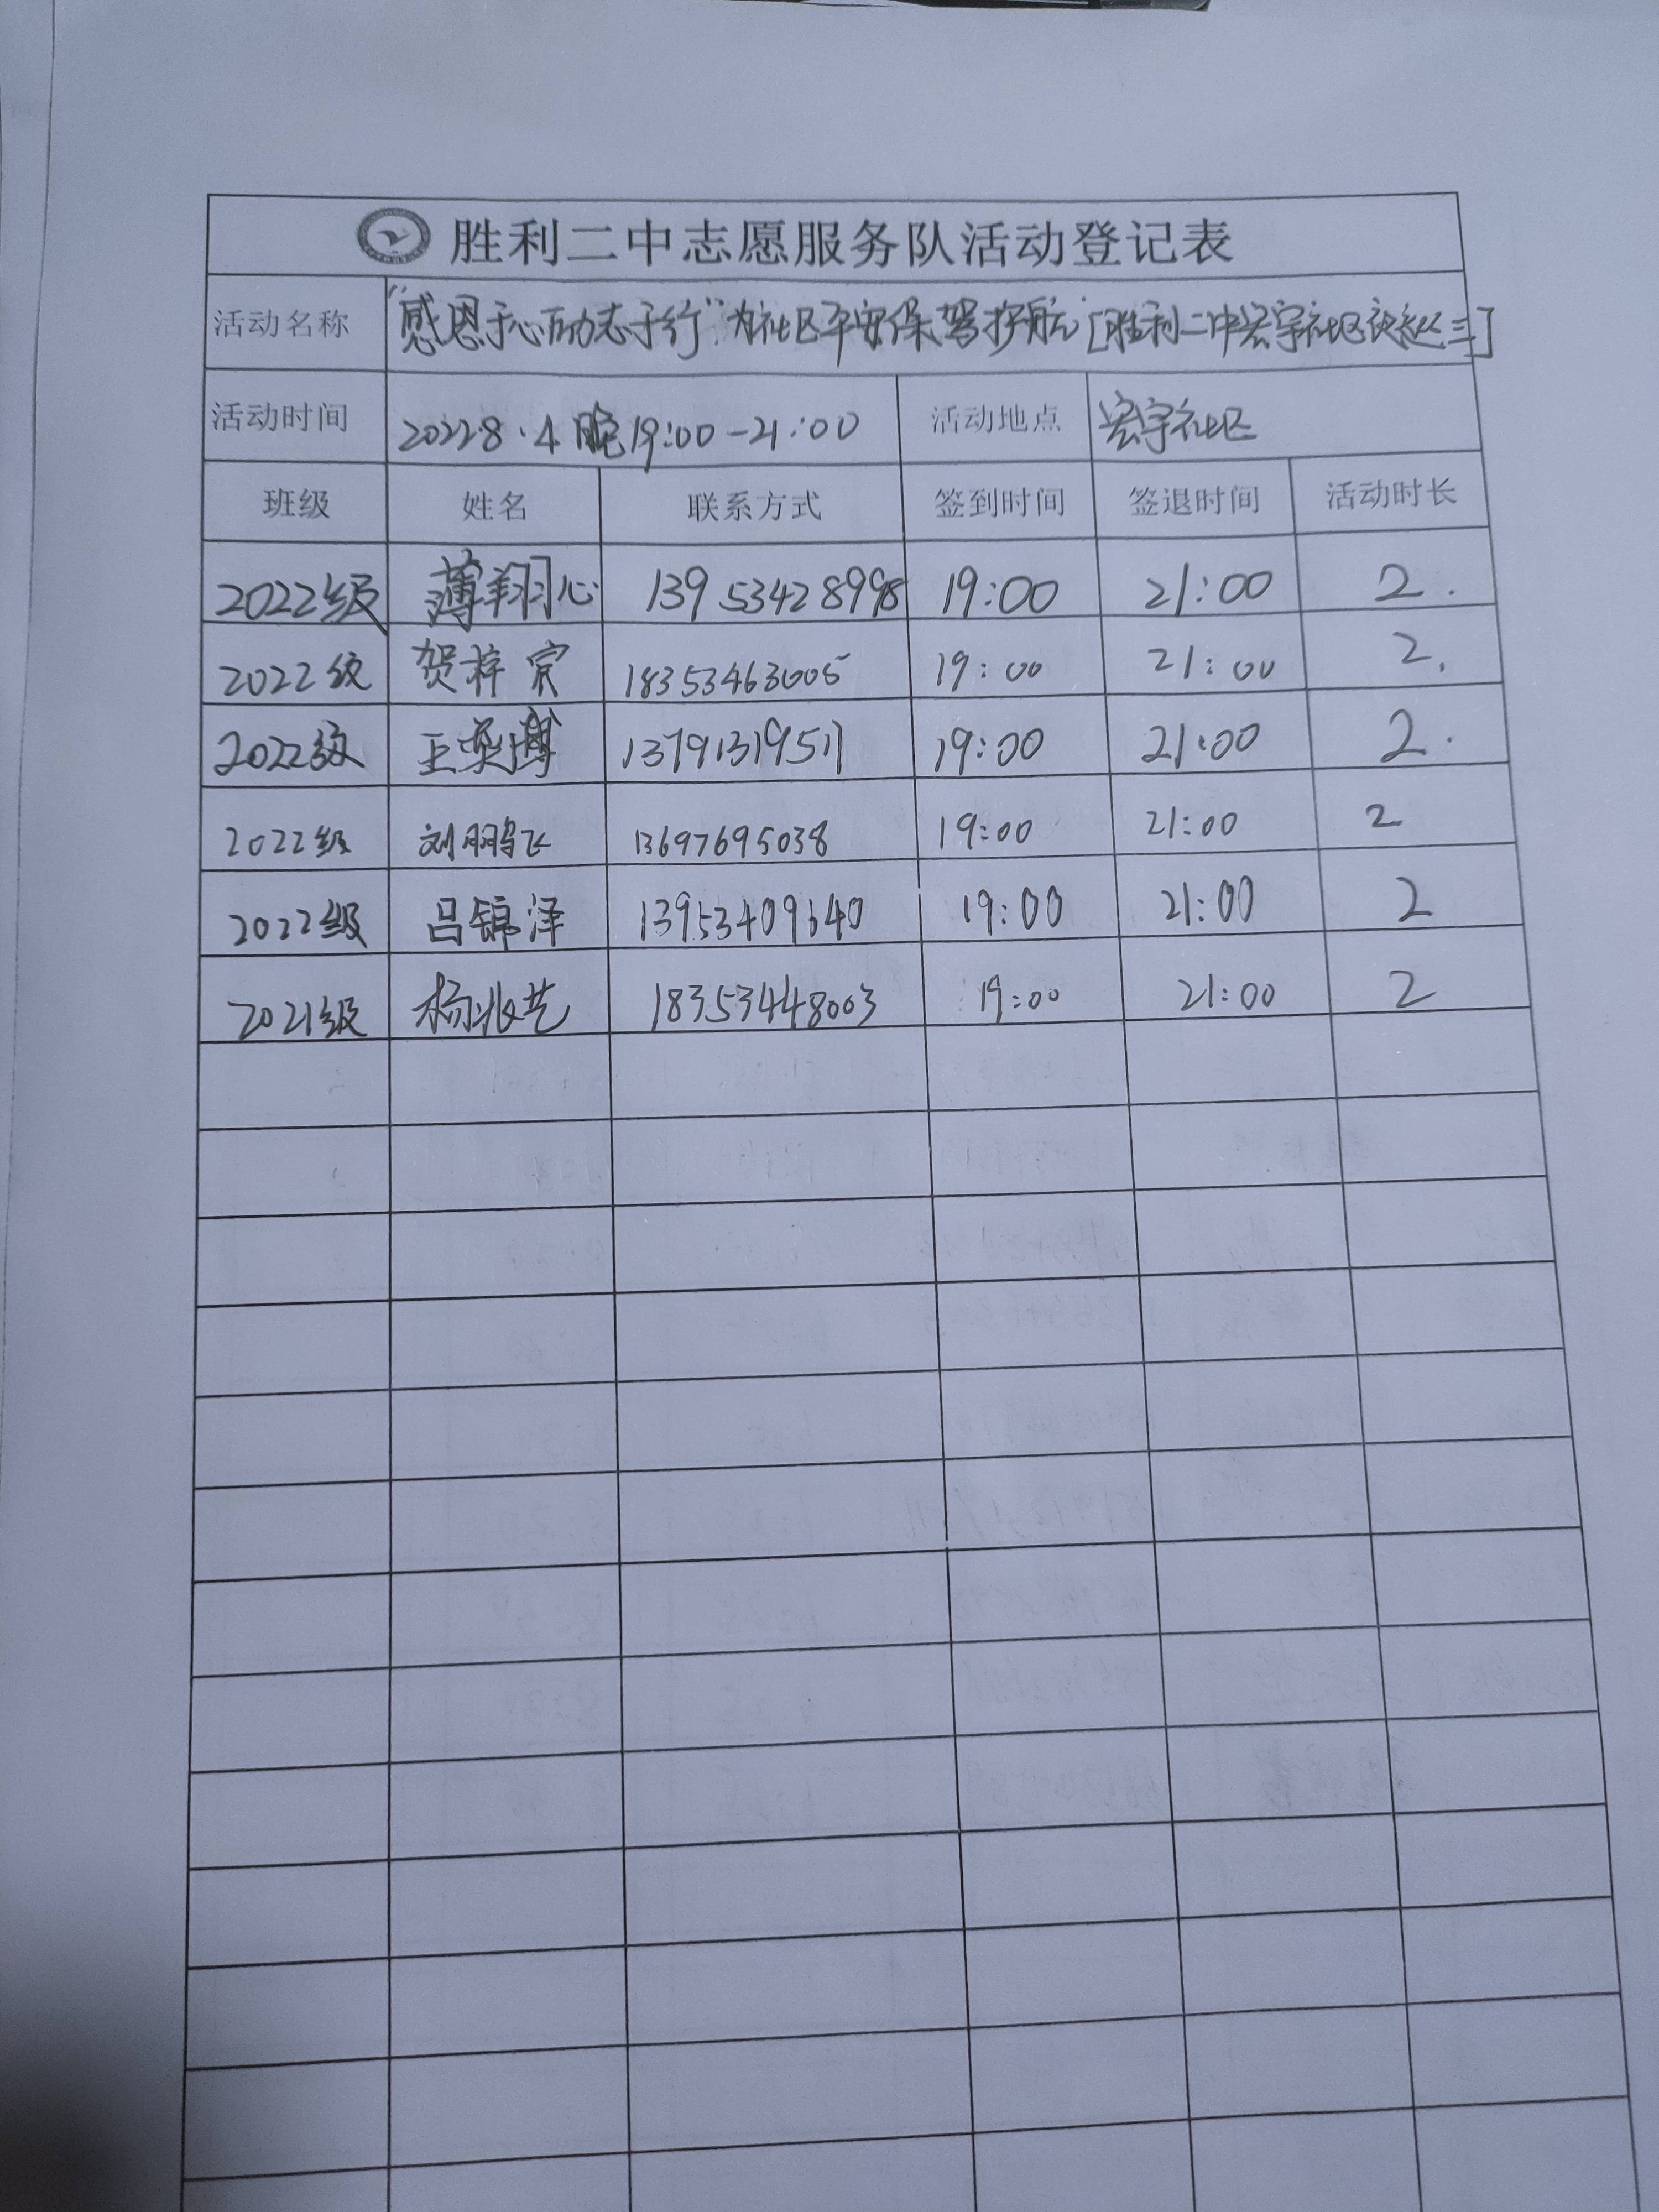 胜利二中志愿服务队活动登记表
活动名称 “感恩于心励志于行”为社区平安保驾护航[胜利二中宏宇社区夜巡三]
活动时间 2022.8.4晚19:00-21:00 活动地点 宏宇社区
班级 姓名 联系方式 签到时间 签退时间 活动时长
2022级 薄翔心 13953428998 19:00 21:00 2.
2022级 贺梓宸 18353463005 19:00 21:00 2.
2022级 王奕博 13791319511 19:00 21:00 2.
2022级 刘鹏飞 13697695038 19:00 21:00 2
2022级 吕锦泽 19:00 21:00 2
2021级 杨兆艺 18353448003 19:00 21:00 2